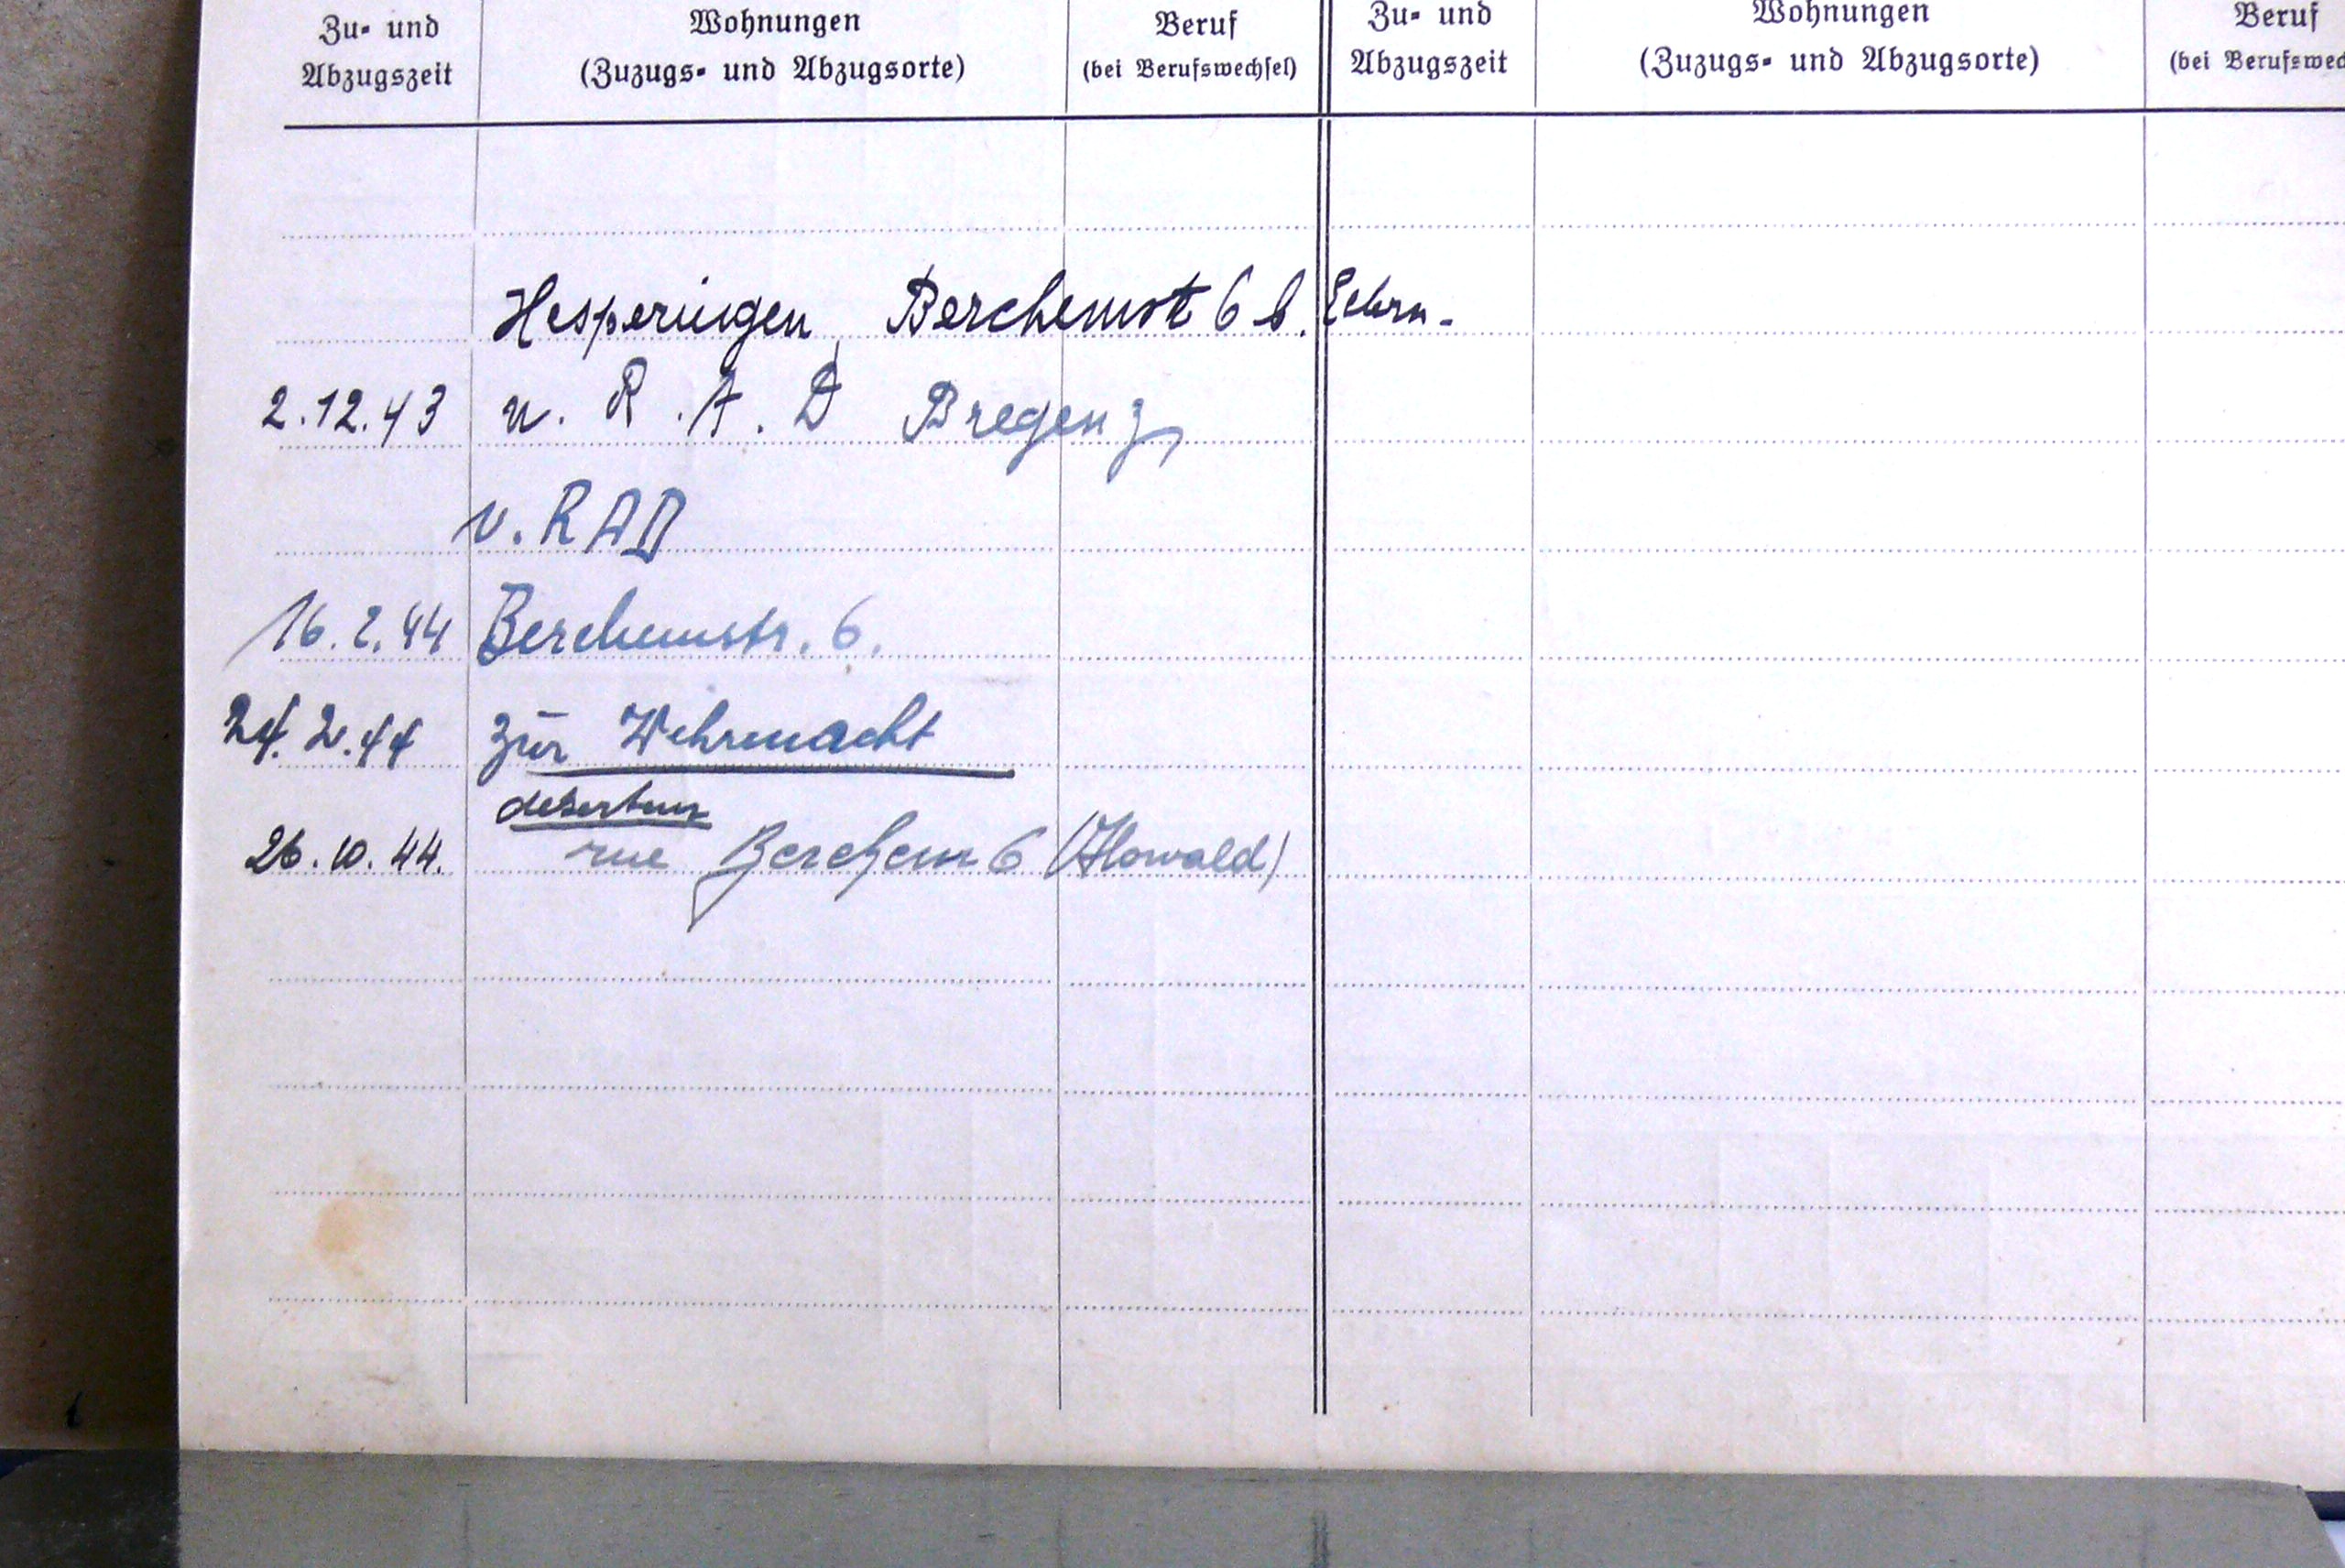 Zu- und Wohnungen Beruf Zu- und Wohnungen Beruf
Abzugszeit (Zuzugs- und Abzugsorte) (bei Berufswechsel) Abzugszeit (Zuzugs- und Abzugsorte) (bei Berufswec
Hesperingen Berchemst 6 b.
2.12.43 n. R.A.D Bregenz
v. RAD
16.2.44 Berchemstr. 6.
24.2.44 zur Wehrmacht
deserteur
26.10.44. rue Berchem 6 (Howald)